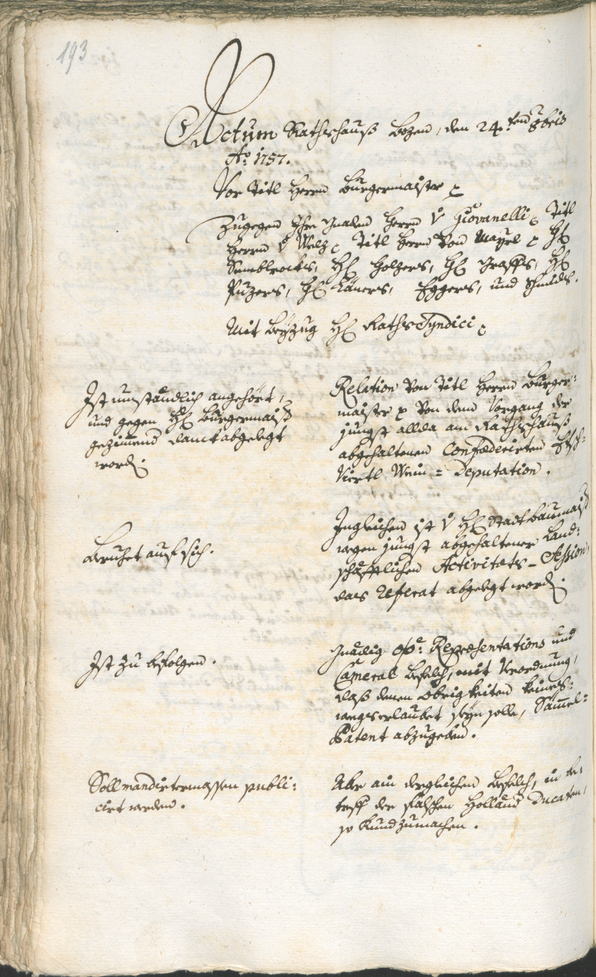 193
Actum Rathshauß Bozen, den 24.ten 8bris
A.o 1757.
Vor Titl Herrn Burgermaister
Zugegen Ihro Gnaden Herrn v. Giovanelli, Titl
Herrn v. Welz, Titl Herrn von Mayrl, H.
H. Holzers, H. Graffs, H.
Puzers, H. Eggers, und Schmids.
Mit Beyzug H. Raths Syndici
Ist umständlich angehört,
und gegen H. Burgermaister
gezimend Dank abgelegt
worden.
Relation von Titl Herrn Burger-
maister von dem Vorgang der
jüngst allda am Rathshauß
abgehaltenen Confoederirten
Viertl Wein-Deputation.
Beruhet auf sich.
Ingleichen ist v. H. Stadt Baumaister
wegen jüngst abgehaltener Land-
schäfftlichen Activitäts-Session
das Referat abgelegt worden.
Ist zu befolgen.
Gnädig o.ö. Repræsentations und
Cameral Befelch, mit Verordnung,
daß denen Obrigkeiten keines-
wegs erlaubet seyn solle, Samel-
Patent abzugeben.
Soll mandirtermassen publi-
cirt werden.
Aber ain dergleichen Befelch, in be-
treff der falschen Holländ Ducaten,
so kundzumachen.